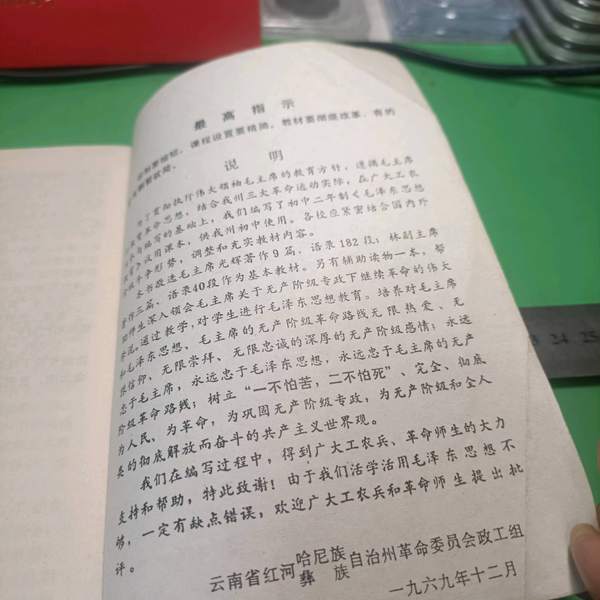 最高指示
学制要缩短，课程设置要精简，教材要彻底改革，有的
首先删繁就简。
说明
为了贯彻执行伟大领袖毛主席的教育方针，遵循毛主席
教育革命思想，结合我州三大革命运动实际，在广大工农
编写的基础上，我们编写了初中二年制《毛泽东思想
教育》试用课本，供我州初中使用。各校应紧密结合国内外
阶级斗争形势，调整和充实教材内容。
本书敬选毛主席光辉著作9篇，语录182段；林副主席
著作三篇、语录40段作为基本教材。另有辅助读物一本，帮
助师生深入领会毛主席关于无产阶级专政下继续革命的伟大
学说。通过教学，对学生进行毛泽东思想教育。培养对毛主席
和毛泽东思想、毛主席的无产阶级革命路线无限热爱、无
限信仰、无限崇拜、无限忠诚的深厚的无产阶级感情；永远
忠于毛主席，永远忠于毛泽东思想，永远忠于毛主席的无产
阶级革命路线；树立“一不怕苦，二不怕死”、完全、彻底
为人民、为革命，为巩固无产阶级专政，为无产阶级和全人
类的彻底解放而奋斗的共产主义世界观。
我们在编写过程中，得到广大工农兵、革命师生的大力
支持和帮助，特此致谢！由于我们活学活用毛泽东思想不
够，一定有缺点错误，欢迎广大工农兵和革命师生提出批
评。
云南省红河哈尼族彝族自治州革命委员会政工组
一九六九年十二月
24 25